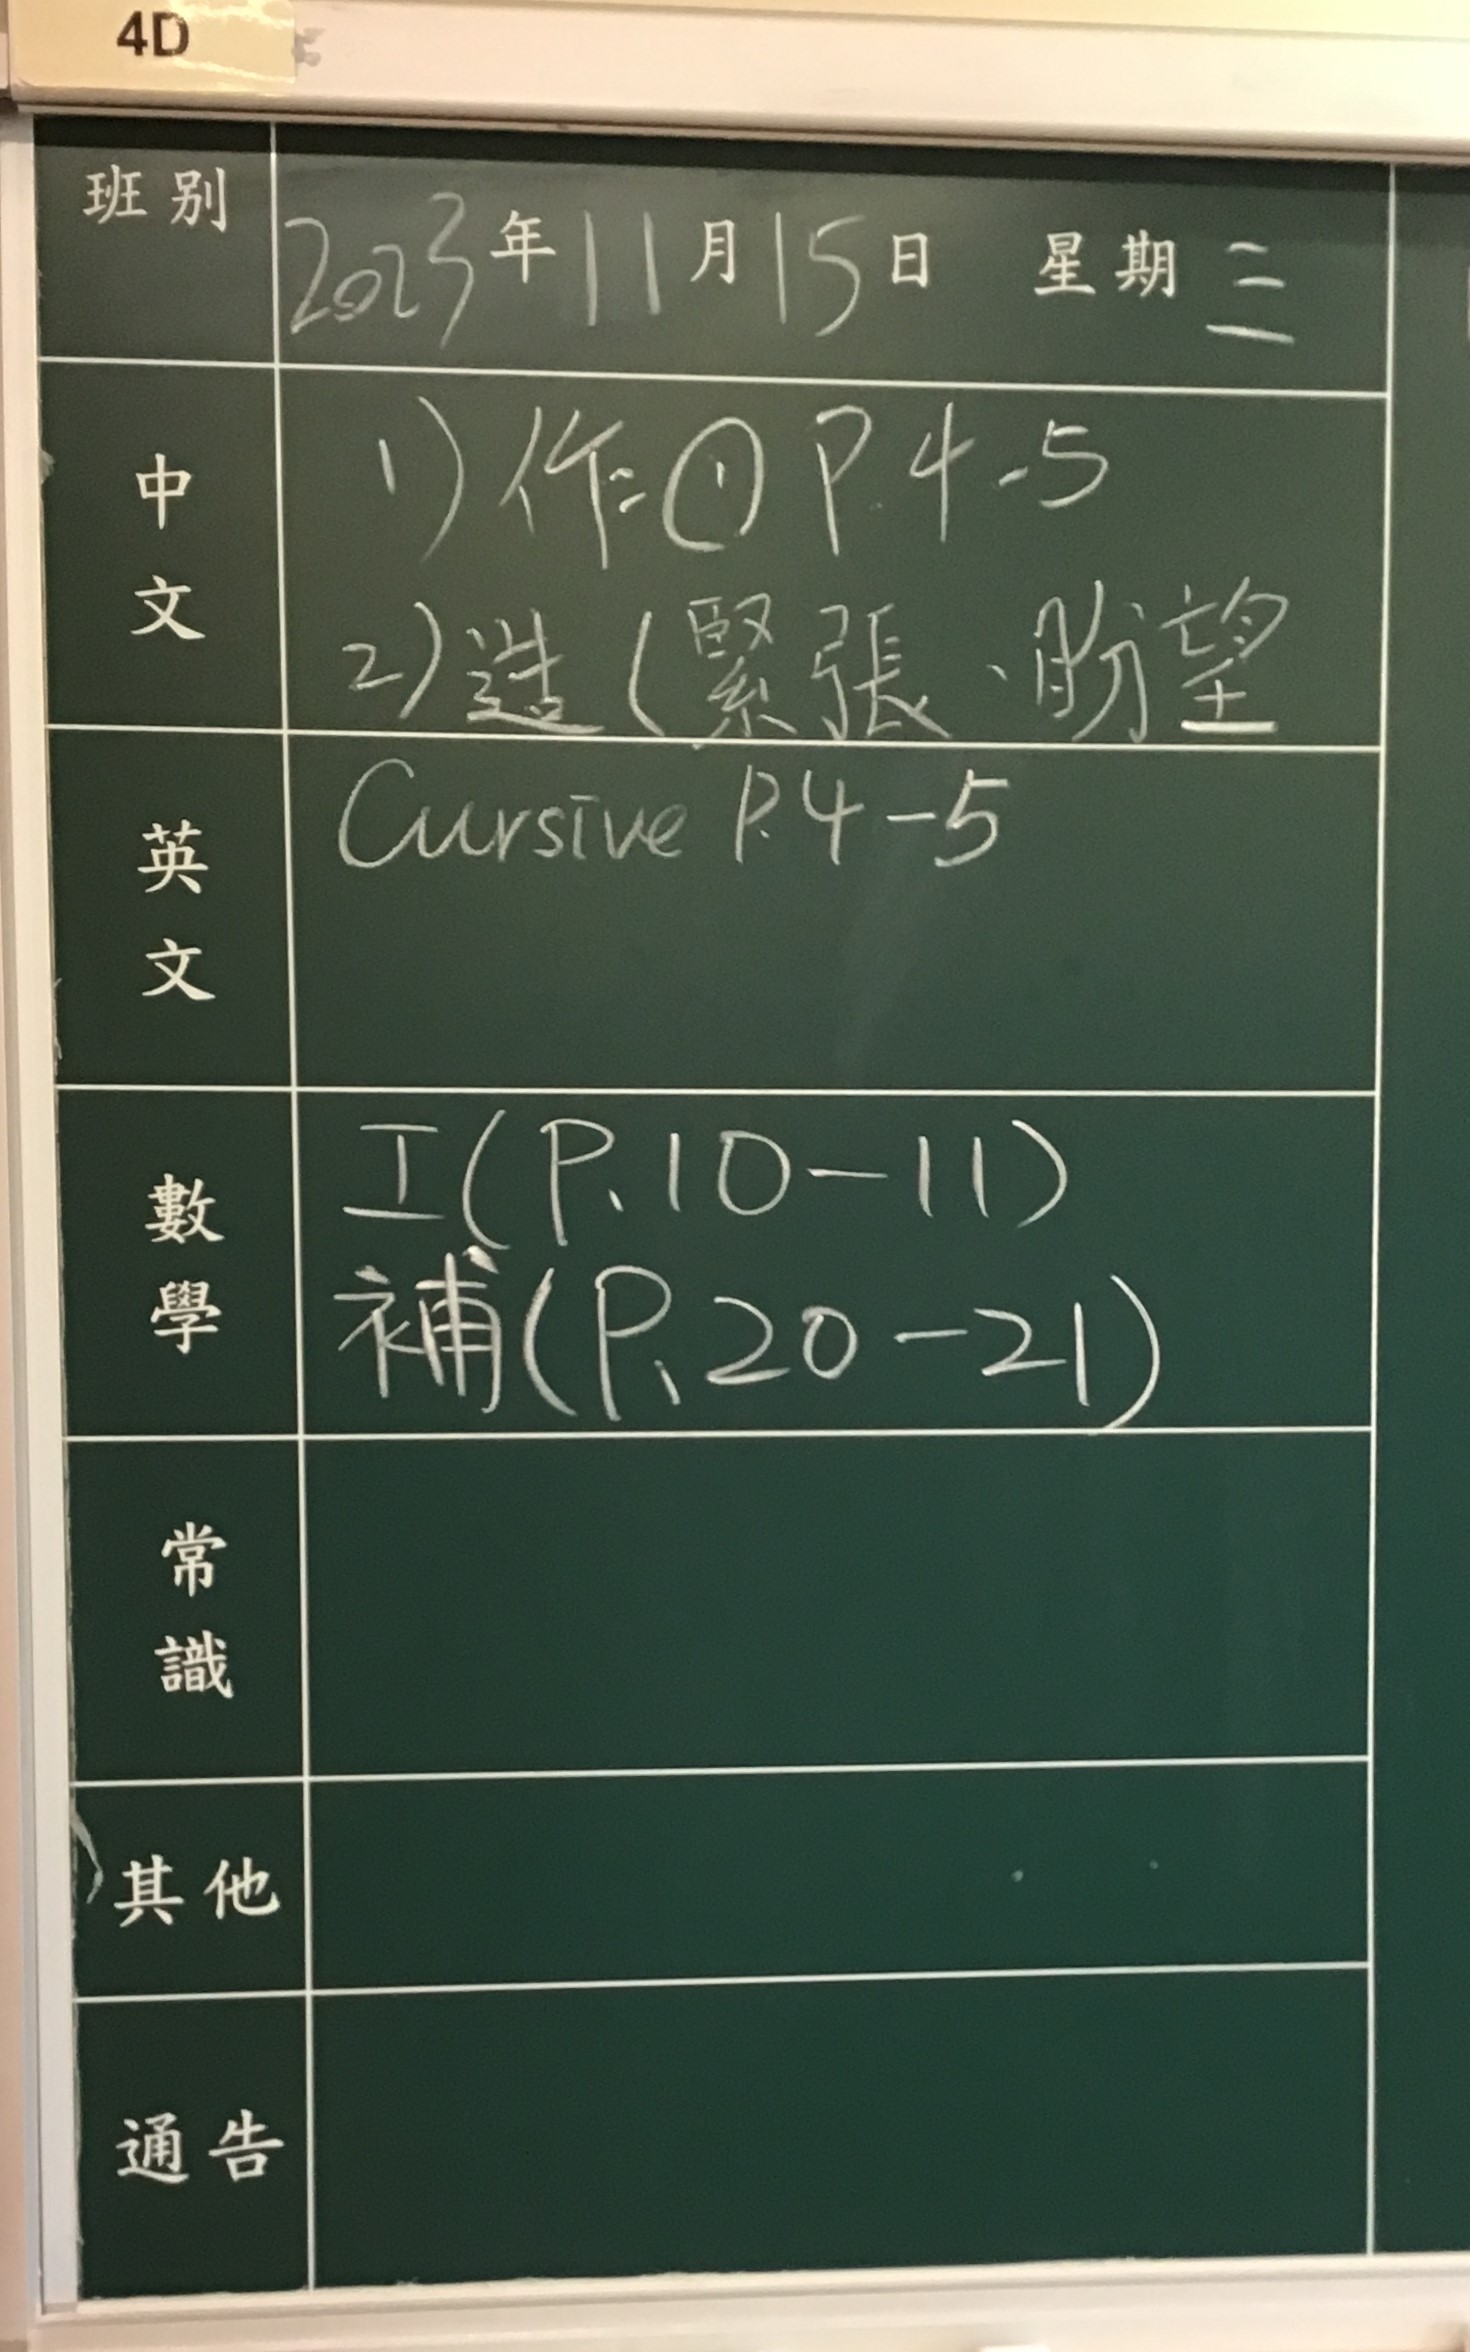 4D
班別
2023年11月15日 星期三
中文
1) 作=① P.4-5
2) 造(緊張、盼望
英文
Cursive P.4-5
數學
工(P.10-11)
補(P.20-21)
常識
其他
通告